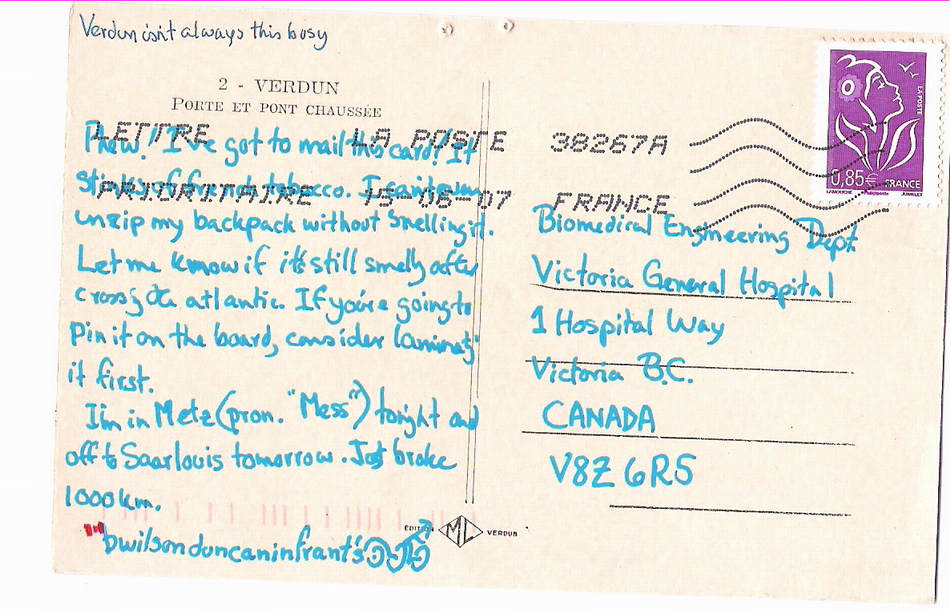 Verdun isn't always this busy
2 - VERDUN
PORTE ET PONT CHAUSSÉE
LETTRE LA POSTE 38267A
PRIORITAIRE 15-08-07 FRANCE
Phew! I've got to mail this card! It
stinks of tobacco. I can't even
unzip my backpack without smelling it.
Let me know if it's still smelly after
cross'g the atlantic. If you're going to
Pin it on the board, consider laminat'g
it first.
I'm in Metz (pron. "Mess") tonight and
off to Saarlouis tomorrow. Just broke
1000 km.
bwilsonduncaninfrant's
EDITION ML VERDUN
LA POSTE
0,85€ FRANCE
Biomedical Engineering Dept
Victoria General Hospital
1 Hospital Way
Victoria B.C.
CANADA
V8Z 6R5